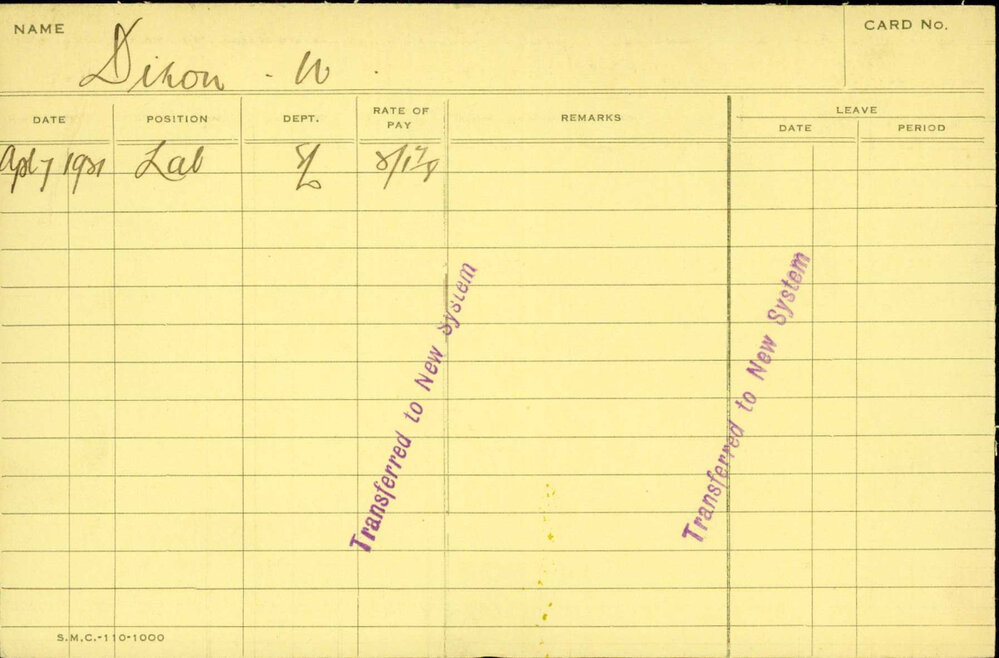 NAME Dixon . W . CARD No.
DATE POSITION DEPT. RATE OF PAY REMARKS LEAVE
DATE PERIOD
Apl 7 1921 Lab
Transferred to New System
Transferred to New System
S.M.C.-110-1000